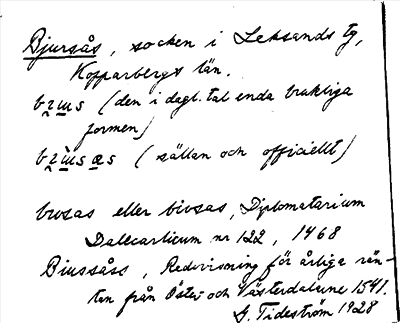 Bjursås, socken i Leksands tg,
Kopparbergs län.
(den i dagl. tal enda brukliga
formen)
(sällan och officiellt)
eller biusas, Diplomatarium
Dalecarlicum nr 122, 1468
Biussåss, Redovisning för årliga rän-
tan från Öster- och Västerdalarne 1541.
G. Tideström 1928